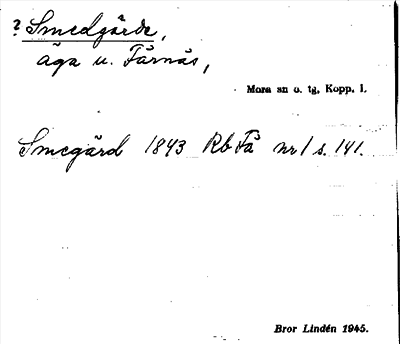 ? Smedgärde,
äga u. Färnäs,
Mora sn o. tg, Kopp. l.
Smegärd 1843 Rb Få nr 1 s. 141.
Bror Lindén 1945.